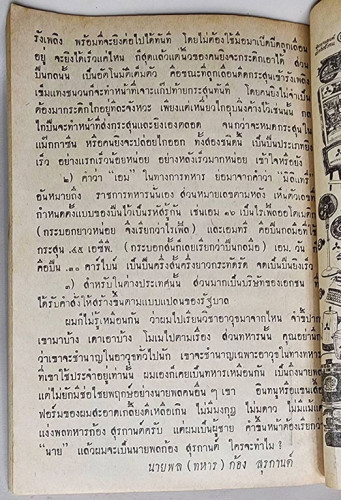 รังเพลิง พร้อมที่จะยิงต่อไปได้ทันที โดยไม่ต้องใช้มือมาเปิดปิดลูกเลื่อน
อยู่ จะยิงได้เร็วแค่ไหน ก็สุดแล้วแต่นิ้วของคนยิงจะกระดิกเอาได้ ส่วน
ปืนกลนั้น เป็นอัตโนมัติเต็มตัว คือขณะที่ลูกเลื่อนดีดกระสุนเข้ารังเพลิง
เข็มแทงชนวนก็จะทำหน้าที่เจาะแก๊ปท้ายกระสุนทันที โดยคนยิงไม่จำเป็น
ต้องมากระดิกไกอยู่ทีละจังหวะ เพียงแต่เหนี่ยวไกอุบนิ่งค้างไว้เช่นนั้น กล
ไกปืนจะทำหน้าที่ส่งกระสุนและยิงเองตลอด จนกว่าจะหมดกระสุนใน
แม๊กกาซีน หรือคนยิงจะปล่อยไกออก ทั้งสองชนิดนี้ เป็นปืนประเภทยิง
เร็ว อย่างแรกเร็วน้อยหน่อย อย่างหลังเร็วมากหน่อย เข้าใจหรือยัง
๒) คำว่า “เอม” ในทางการทหาร ย่อมาจากคำว่า “มิลิแทรี่”
อันหมายถึง ราชการทหารนั่นเอง ส่วนหมายเลขตามหลัง เห็นตัวเลข
กำหนดตั้งแบบของปืนไว้เป็นรหัสรู้กัน เช่นเอม ๑๖ เป็นไรเฟิลออโตเมติ
(กระบอกยาวหน่อย จึงเรียกว่าไรเฟิ้ล) และเอมทรี คือปืนกลมือที่ใช้
กระสุน .๔๕ เอซีพี. (กระบอกสั้นก็เลยเรียกว่าปืนกลมือ) เอม. วัน
คือปืน .๓๐ คาร์ไบน์ เป็นปืนครึ่งสั้นครึ่งยาวกระทัดรัด จดเป็นปืนยิงเร็ว
๓) สำหรับในต่างประเทศนั้น ส่วนมากเป็นบริษัทของเอกชน ที่
ได้รับคำสั่งให้สร้างขึ้นตามแบบแปลนของรัฐบาล
ผมก็ไม่รู้เหมือนกัน ว่าผมไปเรียนวิชาอาวุธมาจากไหน จำขี้ปาก
เขามาบ้าง เดาเอาบ้าง โมเมไปตามเรื่อง ส่วนทหารนั้น คุณอย่านึก
ว่าเขาจะชำนาญในอาวุธทั่วไปนัก เขาจะชำนาญเฉพาะอาวุธในทางทหาร
ที่เขาใช้ประจำอยู่เท่านั้น ผมเองก็เคยเป็นทหารเหมือนกัน เป็นถึงนายพล
แต่ไม่ยักมีช่อชัยพฤกษ์อย่างนายพลคนอื่น ๆ เขา อินทนูหรือแขนเสื้อ
ฟอร์มของผมสะอาดเกลี้ยงดีเหลือเกิน ไม่มีมงกุฎ ไม่มีดาว ไม่มีแม้แ
แง่งพลทหารก้อง สุรกานต์ครับ แต่ผมเป็นผู้ชาย คำขึ้นหน้าต้องเรียกว่า
“นาย” แล้วผมจะเป็นนายพลก้อง สุรกานต์ ใครจะทำไม ?
นายพล (ทหาร) ก้อง สุรกานต์